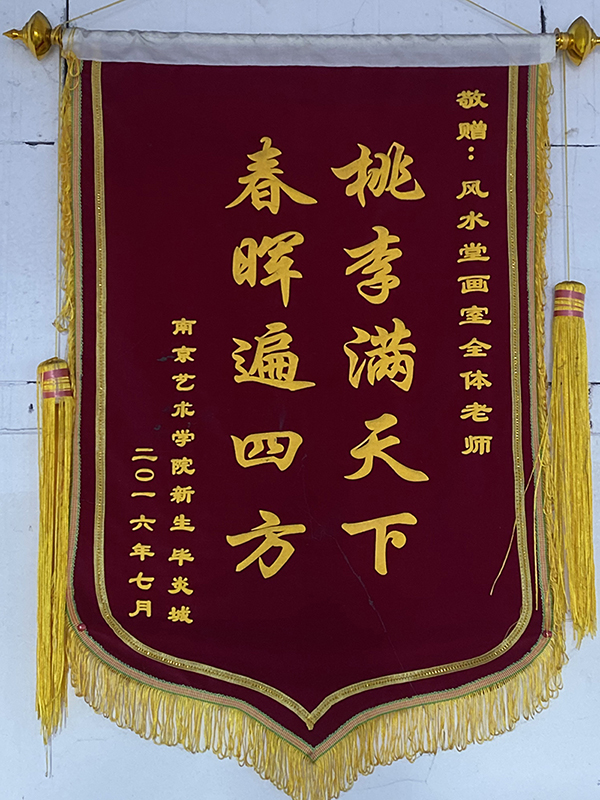 敬赠：风水堂画室全体老师
桃李满天下
春晖遍四方
南京艺术学院新生 毕炎城
二〇一六年七月